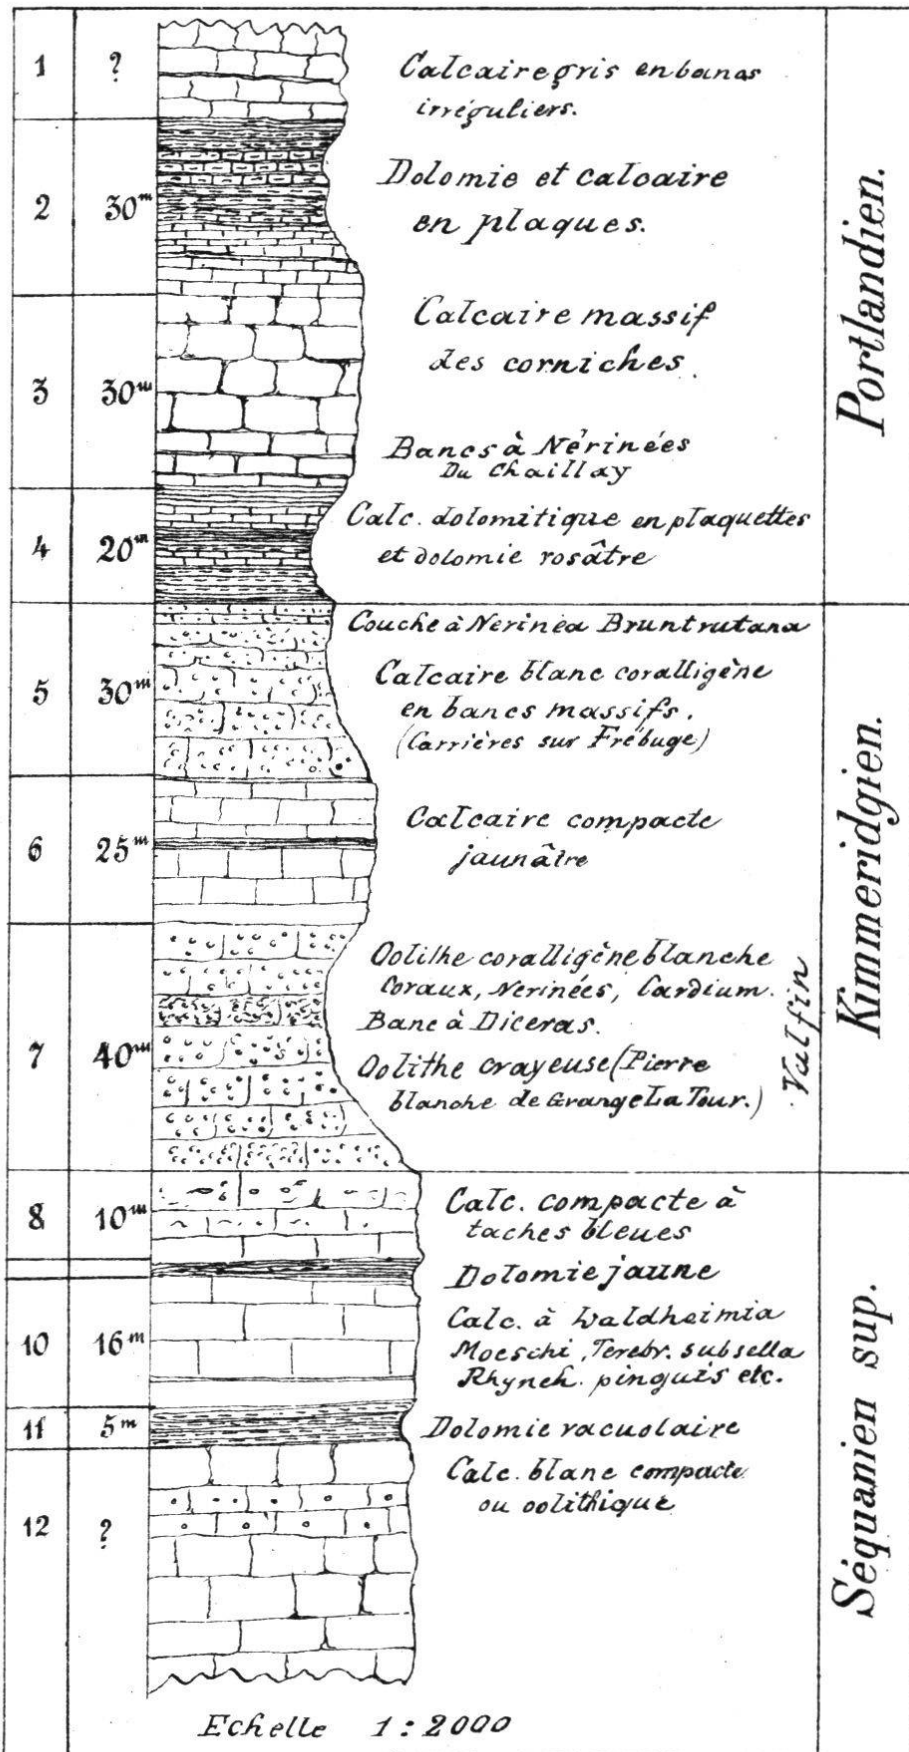 1 ? Calcaire gris en bancs
irréguliers.
2 30m Dolomie et calcaire
en plaques.
Portlandien.
3 30m Calcaire massif
des corniches.
Bancs à Nérinées
Du Chaillay
4 20m Calc. dolomitique en plaquettes
et dolomie rosâtre
Couche à Nerinea Bruntrutana
5 30m Calcaire blanc coralligène
en bancs massifs.
(Carrières sur Frébuge)
6 25m Calcaire compacte
jaunâtre
Kimmeridgien.
7 40m Oolithe coralligène blanche
Coraux, Nerinées, Cardium.
Banc à Diceras.
Oolithe crayeuse (Pierre
blanche de Grange La Tour.)
Valfin
8 10m Calc. compacte à
taches bleues
Dolomie jaune
10 16m Calc. à Waldheimia
Moeschi, Terebr. subsella
Rhynch. pinguis etc.
11 5m Dolomie vacuolaire
12 ? Calc. blanc compacte
ou oolithique
Séquanien sup.
Echelle 1:2000